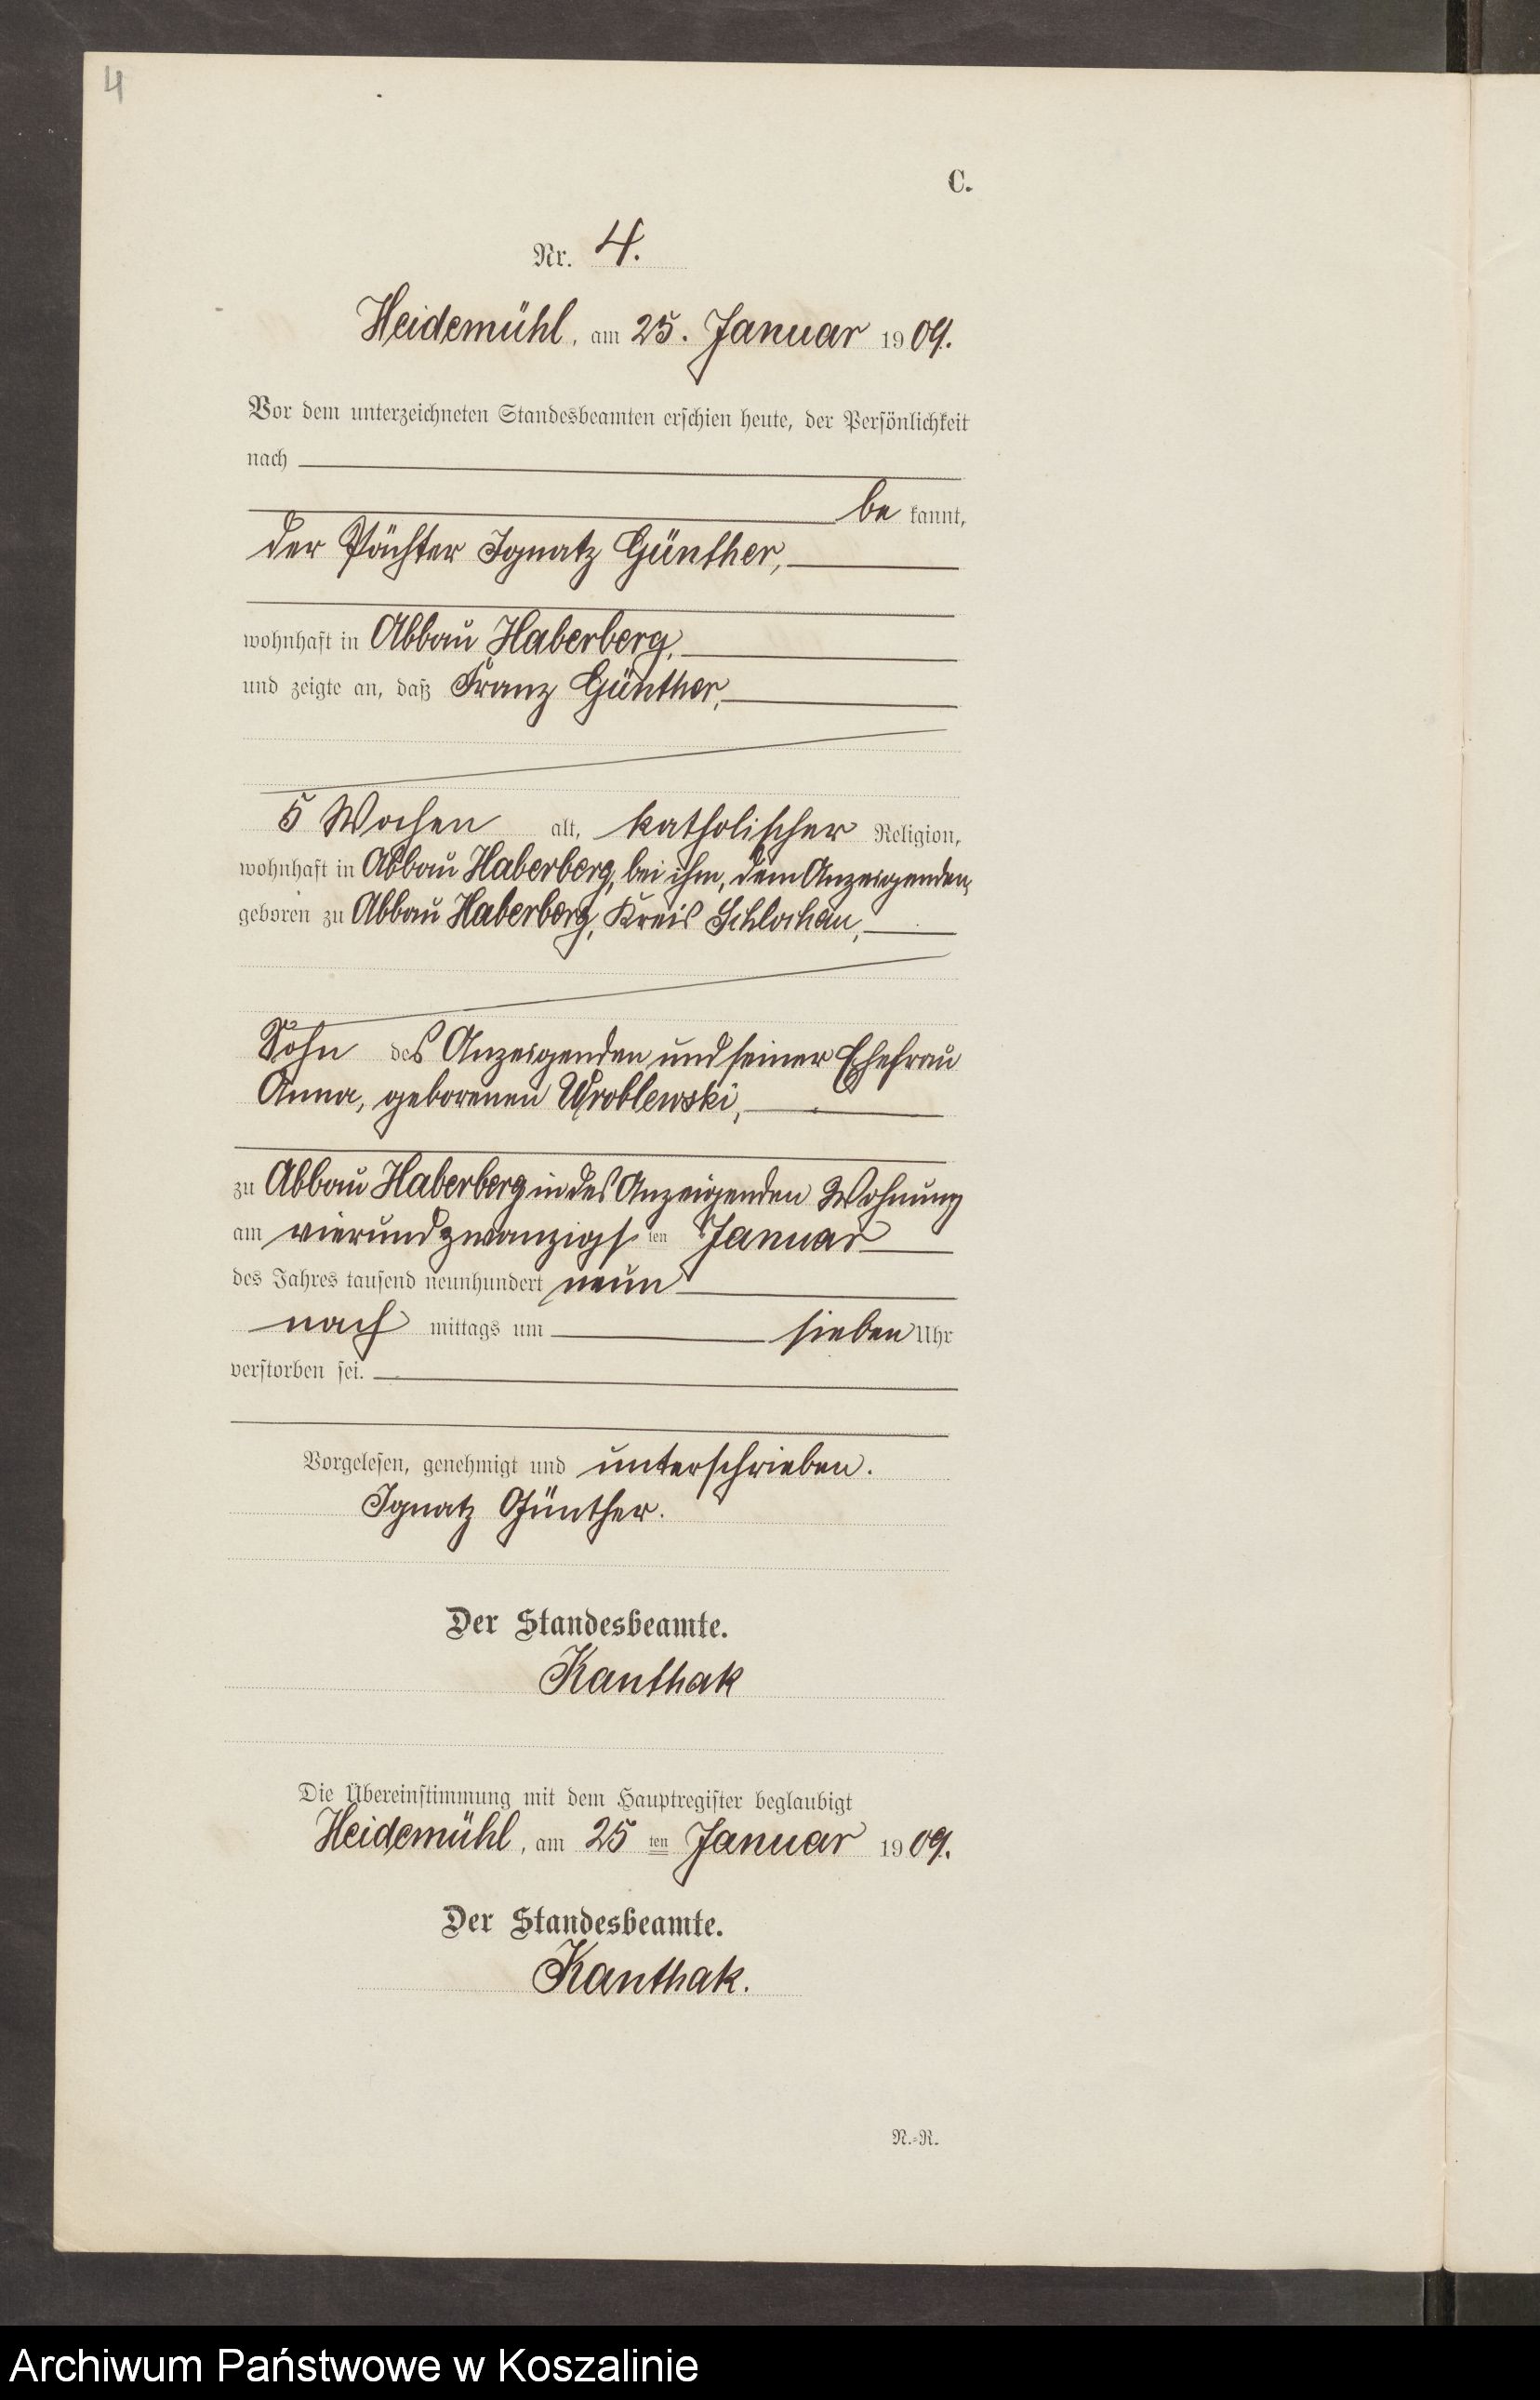 4
C.
Nr. 4.
Heidemühl, am 25. Januar 1909.
Vor dem unterzeichneten Standesbeamten erschien heute, der Persönlichkeit
nach
be kannt,
der Pächter Ignatz Günther,
wohnhaft in Abbau Haberberg,
und zeigte an, daß Franz Günther,
5 Wochen alt, katholischer Religion,
wohnhaft in Abbau Haberberg, bei ihm, dem Anzeigenden,
geboren zu Abbau Haberberg, Kreis Schlochau,
Sohn des Anzeigenden und seiner Ehefrau
Anna, geborenen Wroblewski,
zu Abbau Haberberg in des Anzeigenden Wohnung
am vierundzwanzigsten Januar
des Jahres tausend neunhundert neun
nach mittags um sieben Uhr
verstorben sei.
Vorgelesen, genehmigt und unterschrieben.
Ignatz Günther.
Der Standesbeamte.
Kanthak
Die Übereinstimmung mit dem Hauptregister beglaubigt
Heidemühl, am 25 ten Januar 1909.
Der Standesbeamte.
Kanthak.
N.=R.
Archiwum Państwowe w Koszalinie